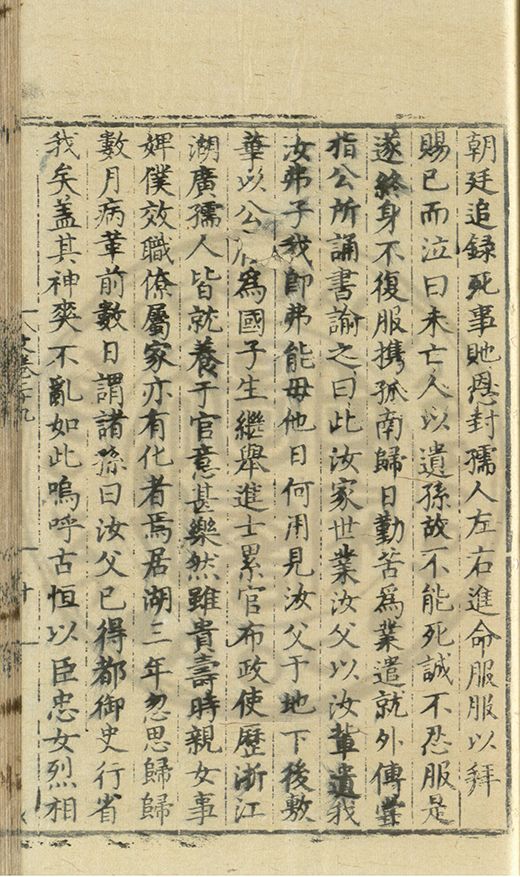 朝廷追録死事貤恩封孺人左右進命服服以拜
賜已而泣曰未亡人以遺孫故不能死誠不忍服是
遂終身不復服携孤南歸日勤苦爲業遣就外傳嘗
指公所誦書諭之曰此汝家世業汝父以汝輩遺我
汝弗子我卽弗能毋他日何用見汝父于地下後敷
華以公 爲國子生繼舉進士累官布政使歷浙江
湖廣孺人皆就養于官意甚樂然雖貴壽時親女事
婢僕效職僚屬家亦有化者焉居湖三年忽思歸歸
數月病革前數日謂諸孫曰汝父已得都御史行省
我矣盖其神爽不亂如此嗚呼古恒以臣忠女烈相
文卷三九
十一